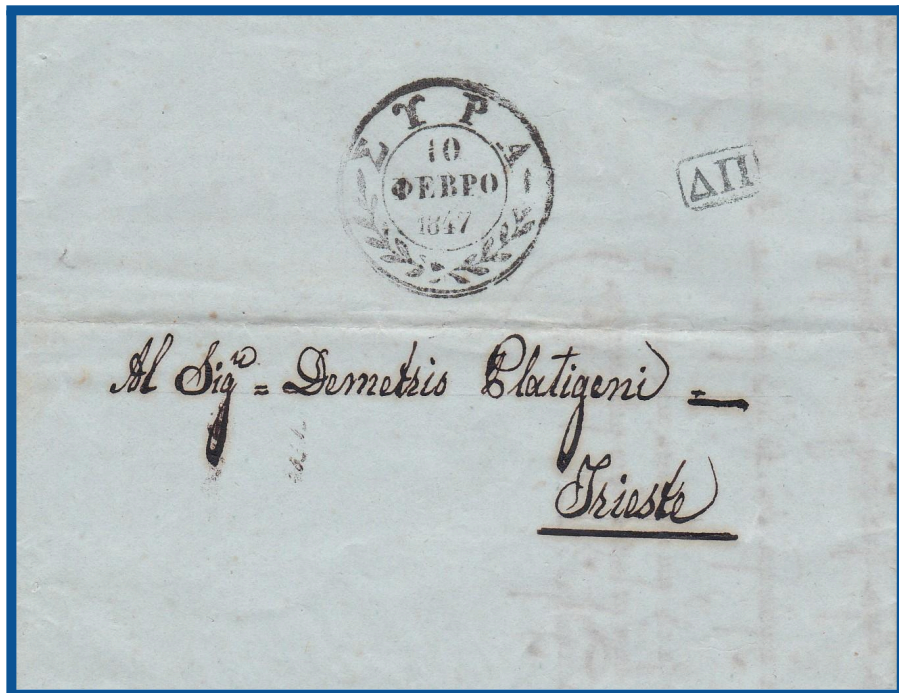 ΣΥΡΑ
10
ΦΕΒΡΟ
1847
ΔΠ
Al Sigʳᵉ = Demetrio Platigeni =
Trieste